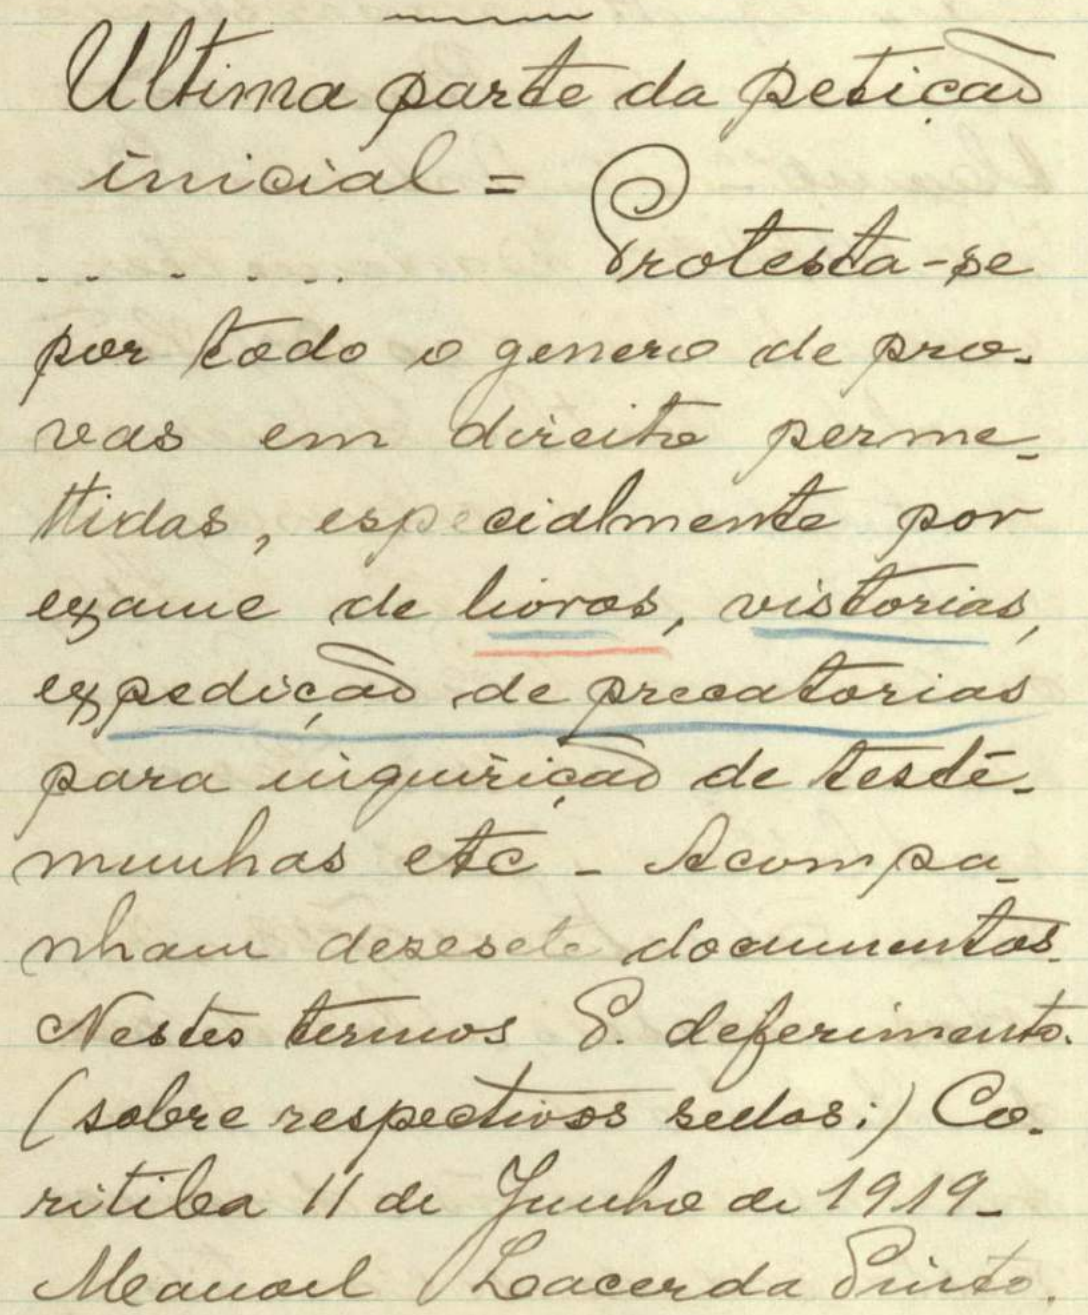 Ultima parte da petição
inicial =
. . . . . . Protesta-se
por todo o genero de pro-
vas em direito perme-
ttidas, especialmente por
exame de livros, vistorias,
expedição de precatorias
para inquirição de teste-
munhas etc - Acompa-
nham dezesete documentos.
Nestes termos P. deferimento.
(sobre respectivos sellos:) Co-
ritiba 11 de Junho de 1919-
Manoel Lacerda Pinto.